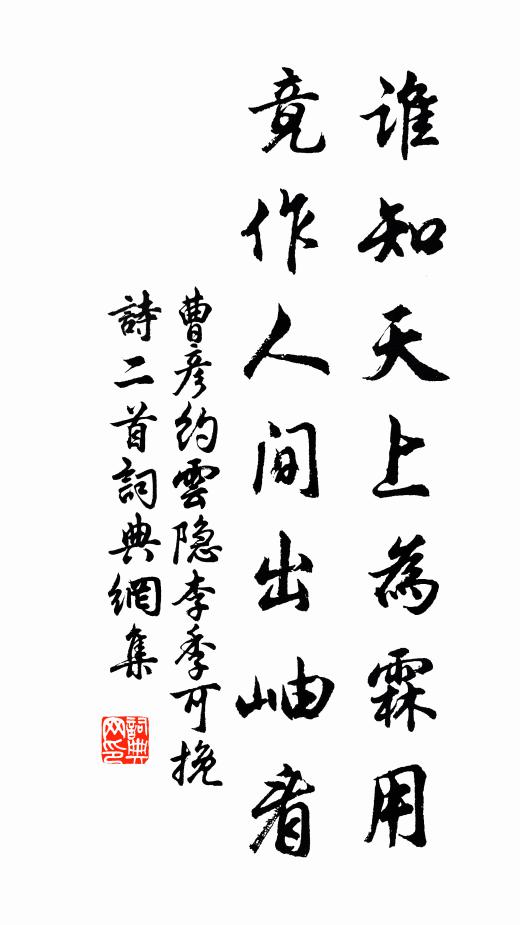 誰知天上為霖用
竟作人間出岫看
曹彥約雲隱李季可挽
詩二首詞典網集
詞典網印